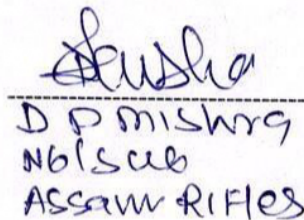 D P Mishra
Nb/Sub
ASSAM RIFles